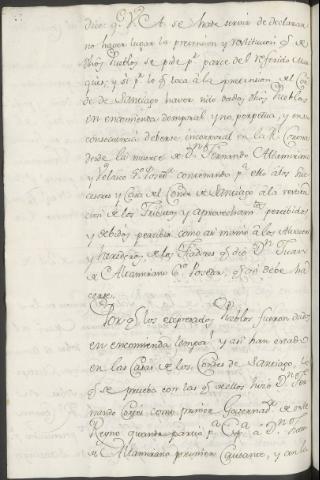 dice q.e V. A. se ha de servir de declarar
no haver lugar la precension y restitucion q.e de
dhos Pueblos se pide p.r parte del referido Mar
ques, y si p.r lo q.e toca à la precension del Con
de de Santiago haver sido dados dhos Pueblos
en encomienda temporal y no perpetua, y en su
consecuencia deberse incorporar en la R.l Corona
desde la muerte de D.n Fernando Altamirano
y Velasco condenando p.a ello à los suc
cesores y Casa del Conde de Santiago à la restitu
cion de los Tributos y aprovecham.tos percibidos
y debidos percibir como asi mismo à los
y herederos de los Fiadores q.e dió D.n Juan
de Altamirano q.e asi debe ha
cerse.
Por q.e los expresados Pueblos fueron dados
en encomienda temporal y asi han estado
en las Casas de los Condes de Santiago, lo
q.e se prueba con las q.e de ellos hizo D.n Fer
nando Cortes como primer Governad.r de este
Reyno quando à D.n Juan
de Altamirano primero Causante, y con la